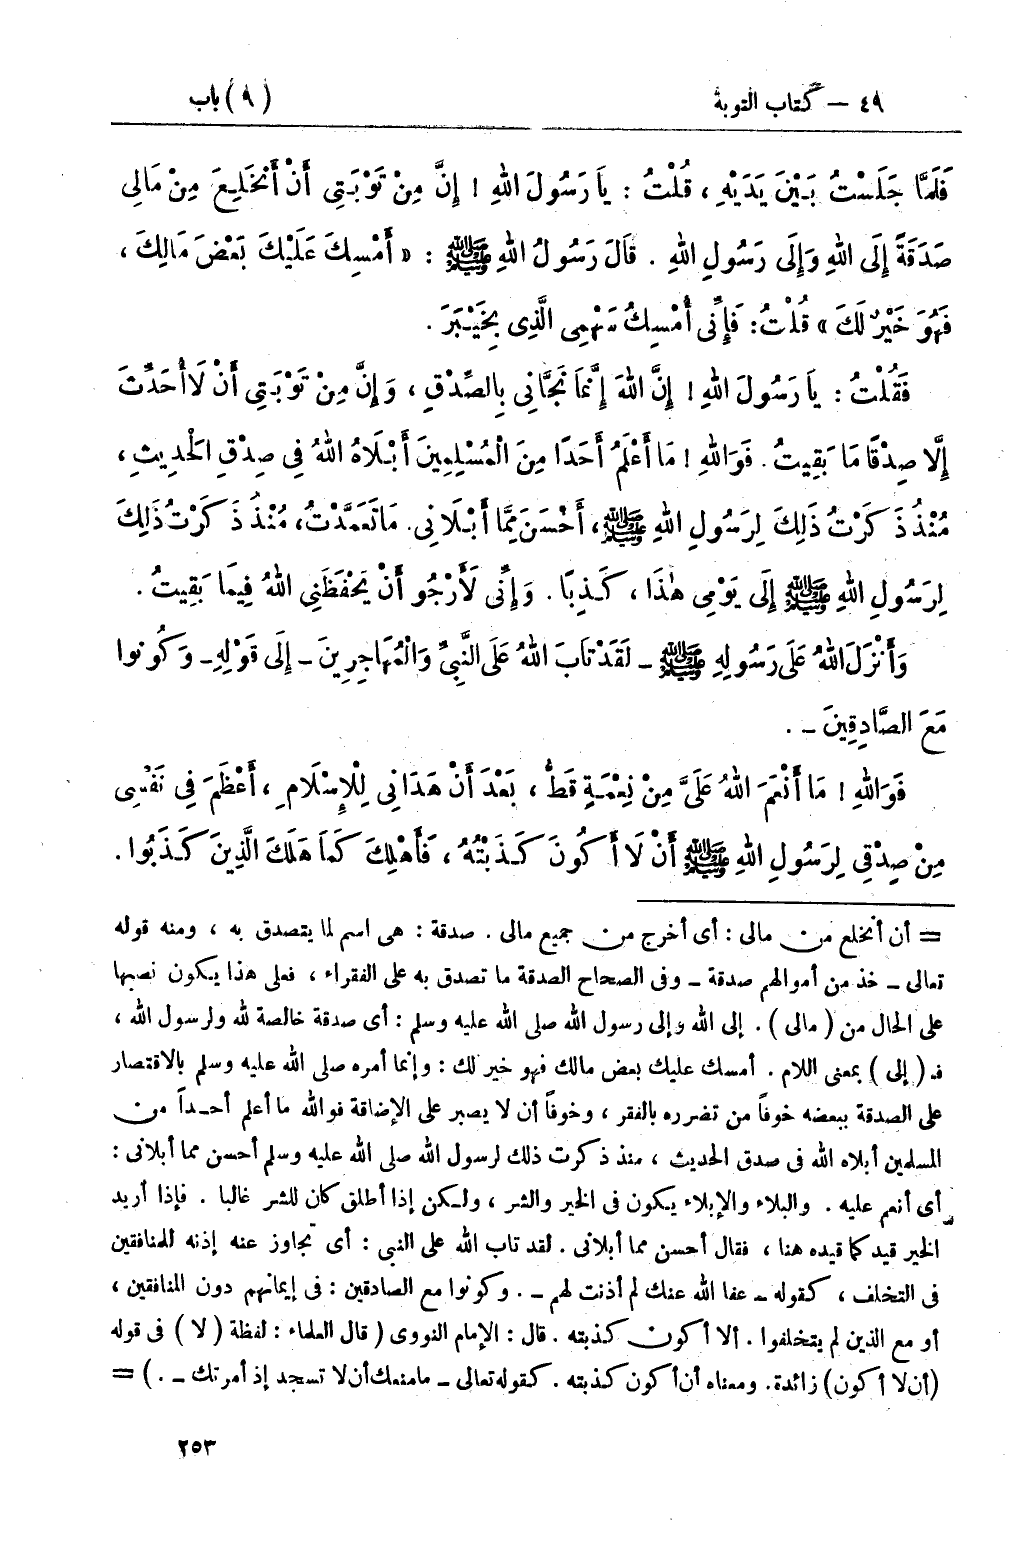 ٤٩ – كتاب التوبة (٩) باب
فَلَمَّا جَلَسْتُ بَيْنَ يَدَيْهِ ، قُلْتُ : يَا رَسُولَ اللهِ ! إِنَّ مِنْ تَوْبَتِي أَنْ أَنْخَلِعَ مِنْ مَالِي
صَدَقَةً إِلَى اللهِ وَإِلَى رَسُولِ اللهِ . قَالَ رَسُولُ اللهِ ﷺ : « أَمْسِكَ عَلَيْكَ بَعْضَ مَالِكَ ،
فَهُوَ خَيْرٌ لَكَ » قُلْتُ: فَإِنِّي أُمْسِكُ سَهْمِي الَّذِي بِخَيْبَرَ .
فَقُلْتُ : يَا رَسُولَ اللهِ ! إِنَّ اللهَ إِنَّمَا نَجَّانِي بِالصِّدْقِ ، وَإِنَّ مِنْ تَوْبَتِي أَنْ لَا أُحَدِّثَ
إِلَّا صِدْقًا مَا بَقِيتُ . فَوَاللهِ ! مَا أَعْلَمُ أَحَدًا مِنَ الْمُسْلِمِينَ أَبْلَاهُ اللهُ فِي صِدْقِ الْحَدِيثِ ،
مُنْذُ ذَكَرْتُ ذَلِكَ لِرَسُولِ اللهِ ﷺ ، أَحْسَنَ مِمَّا أَبْلَانِي . مَا تَعَمَّدْتُ ، مُنْذُ ذَكَرْتُ ذَلِكَ
لِرَسُولِ اللهِ ﷺ إِلَى يَوْمِي هٰذَا ، كَذِبًا . وَإِنِّي لَأَرْجُو أَنْ يَحْفَظَنِي اللهُ فِيمَا بَقِيتُ .
وَأَنْزَلَ اللهُ عَلَى رَسُولِهِ ﷺ – لَقَدْ تَابَ اللهُ عَلَى النَّبِيِّ وَالْمُهَاجِرِينَ – إِلَى قَوْلِهِ – وَكُونُوا
مَعَ الصَّادِقِينَ – .
فَوَاللهِ ! مَا أَنْعَمَ اللهُ عَلَيَّ مِنْ نِعْمَةٍ قَطُّ ، بَعْدَ أَنْ هَدَانِي لِلْإِسْلَامِ ، أَعْظَمَ فِي نَفْسِي
مِنْ صِدْقِي لِرَسُولِ اللهِ ﷺ أَنْ لَا أَكُونَ كَذَبْتُهُ ، فَأَهْلِكَ كَمَا هَلَكَ الَّذِينَ كَذَبُوا .
= أن أنخلع من مالى : أى أخرج من جميع مالى . صدقة : هى اسم لما يتصدق به ، ومنه قوله
تعالى – خذ من أموالهم صدقة – وفى الصحاح الصدقة ما تصدق به على الفقراء ، فعلى هذا يكون نصبها
على الحال من ( مالى ) . إلى الله وإلى رسول الله صلى الله عليه وسلم : أى صدقة خالصة لله ولرسول الله ،
فـ ( إلى ) بمعنى اللام . أمسك عليك بعض مالك فهو خير لك : وإنما أمره صلى الله عليه وسلم بالاقتصار
على الصدقة ببعضه خوفاً من تضرره بالفقر ، وخوفاً أن لا يصبر على الإضاقة فوالله ما أعلم أحداً من
المسلمين أبلاه الله فى صدق الحديث ، منذ ذكرت ذلك لرسول الله صلى الله عليه وسلم أحسن مما أبلانى :
أى أنعم عليه . والبلاء والإبلاء يكون فى الخير والشر ، ولكن إذا أطلق كان للشر غالبا . فإذا أريد
الخير قيد كما قيده هنا ، فقال أحسن مما أبلانى . لقد تاب الله على النبى : أى تجاوز عنه إذنه للمنافقين
فى التخلف ، كقوله – عفا الله عنك لم أذنت لهم – . وكونوا مع الصادقين : فى إيمانهم دون المنافقين ،
أو مع الذين لم يتخلفوا . ألا أكون كذبته . قال : الإمام النووى ( قال العلماء : لفظة ( لا ) فى قوله
(أن لا أكون) زائدة. ومعناه أن أكون كذبته . كقوله تعالى – ما منعك أن لا تسجد إذ أمرتك – . ) =
٢٥٣